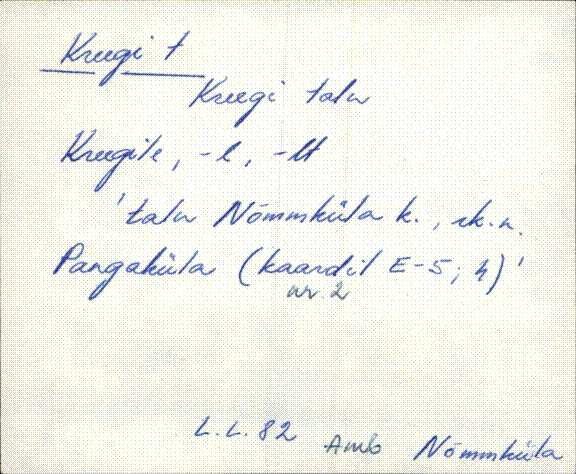 Kreegi t
Kreegi talu
Kreegile, -l, -lt
'talu Nõmmküla k., rk.n.
Pangaküla (kaardil E-5; 4)'
nr. 2
L.L. 82 Amb Nõmmküla